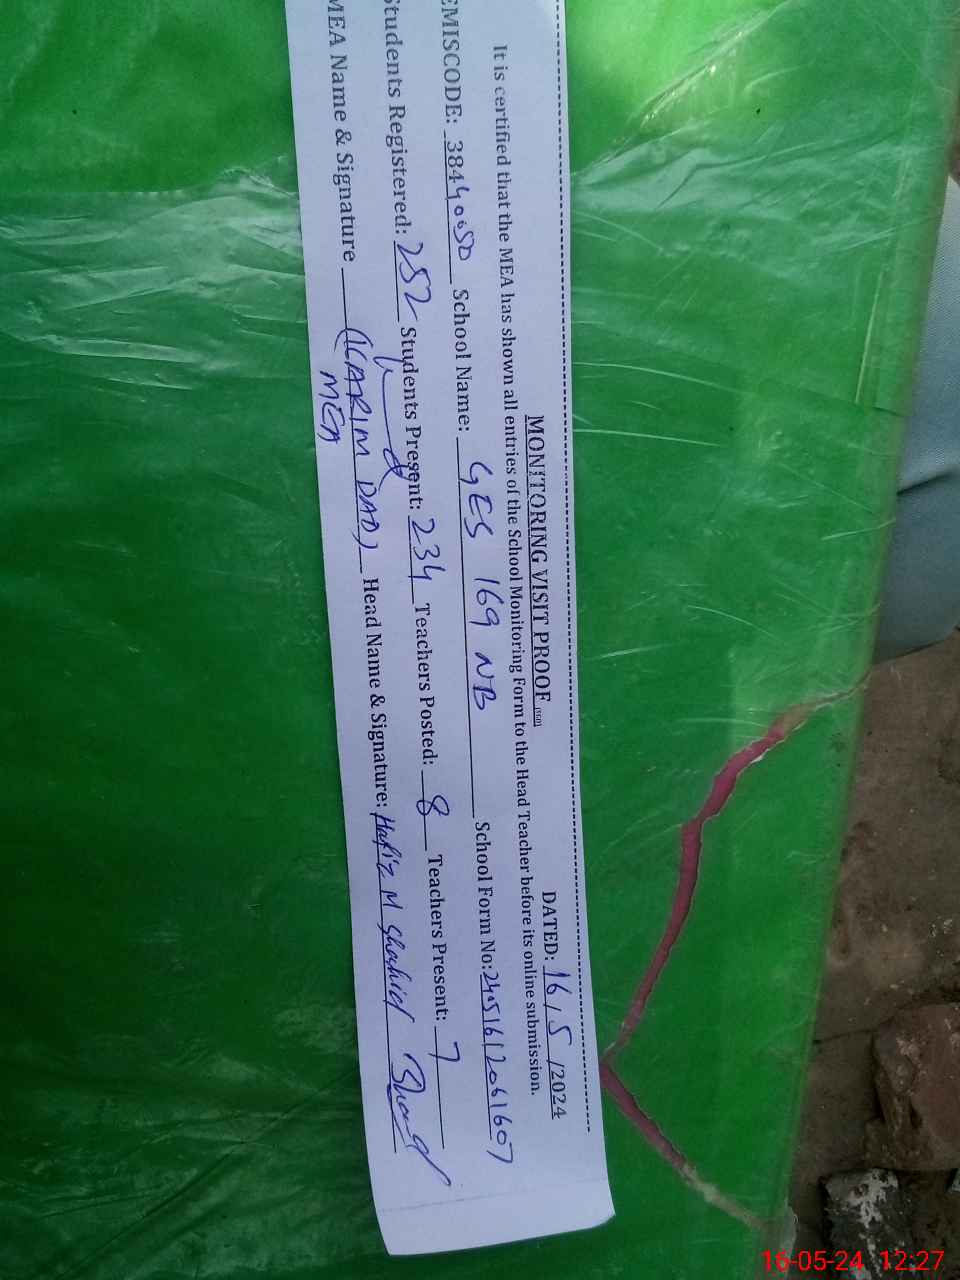 MONITORING VISIT PROOF
DATED: 16/5/2024
It is certified that the MEA has shown all entries of the School Monitoring Form to the Head Teacher before its online submission.
EMISCODE: 38440050 School Name: GES 169 NB School Form No: 24051612061607
Students Registered: 252 Students Present: 234 Teachers Posted: 8 Teachers Present: 7
MEA Name & Signature (KARIM DAD) Head Name & Signature: Hafiz M Shahid
MEA
16-05-24 12:27